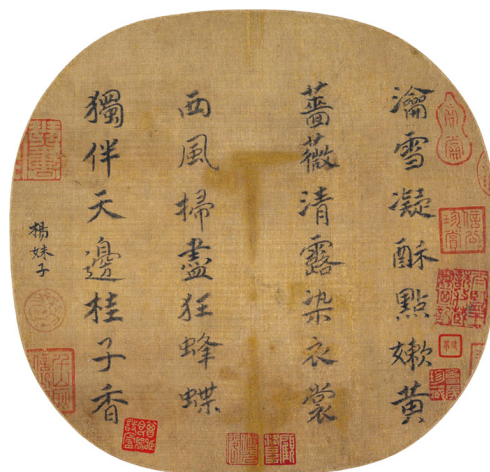 瀹雪凝酥點嫰黃
薔薇清露染衣裳
西風掃盡狂蜂蝶
獨伴天邊桂子香
楊妹子